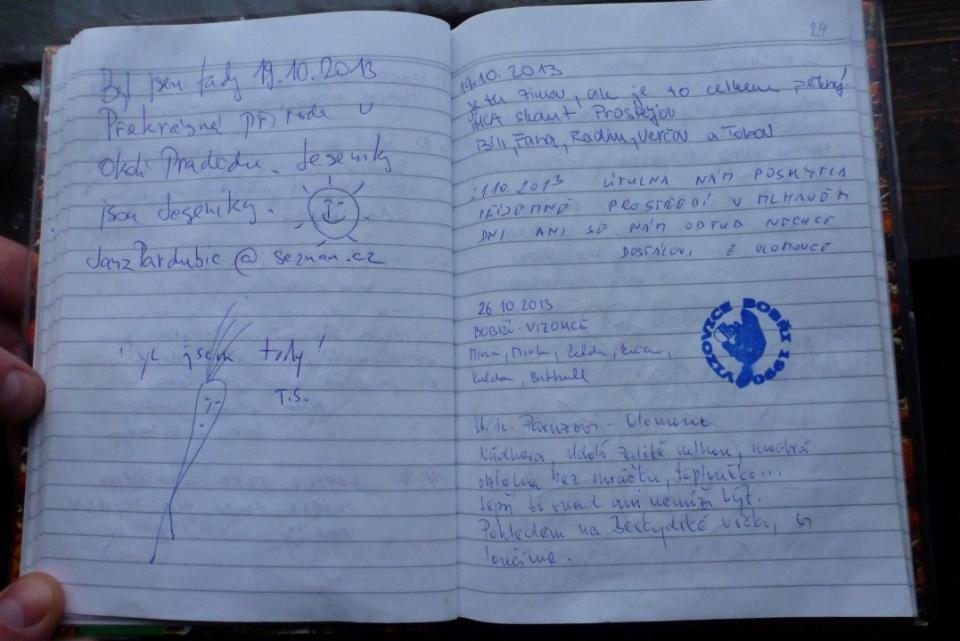 Byl jsem tady 19.10.2013
Překrásná příroda v
okolí Pradědu. Jeseníky
jsou Jeseníky.
JanzPardubic@seznam.cz
yl jsem tady!
T.S.
24
19.10.2013
Je tu zima, ale je to celkem pěkný
skaut Prostějov
Bill, Fana, Radim, Verča a Tokov
21.10.2013 ÚTULNA NÁM POSKYTLA
PŘÍJEMNÉ PROSTŘEDÍ V MLHAVÉM
DNI ANI SE NÁM ODTUD NECHCE
DOSTÁLOVI Z OLOMOUCE
26.10.2013
BOBŘÍ - VIZOVICE
Zelda,
VIZOVICE BOBŘI 1990
- Olomouc
Nádhera, údolí zalité mlhou, modrá
obloha bez mráčku, teploučko...
Lepší to snad ani nemůže být.
Pohledem na Beskydské vršky, se
loučíme.